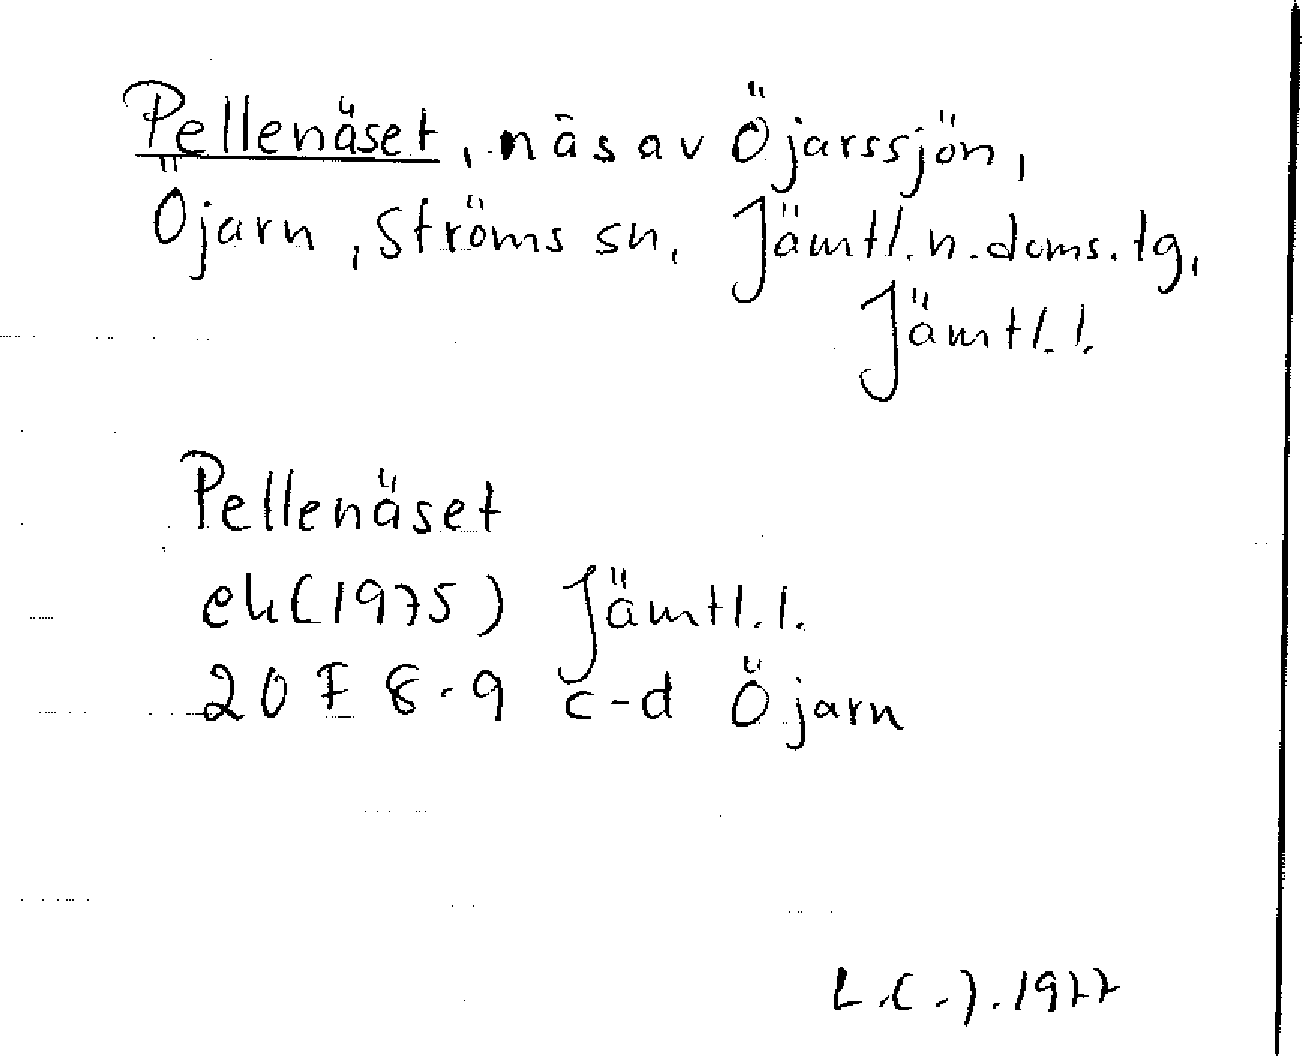 Pellenäset, näs av Öjarssjön,
Öjarn, Ströms sn, Jämtl. n. doms. tg,
Jämtl. l.
Pellenäset
ek (1975) Jämtl. l.
20 F 8-9 c-d Öjarn
1977